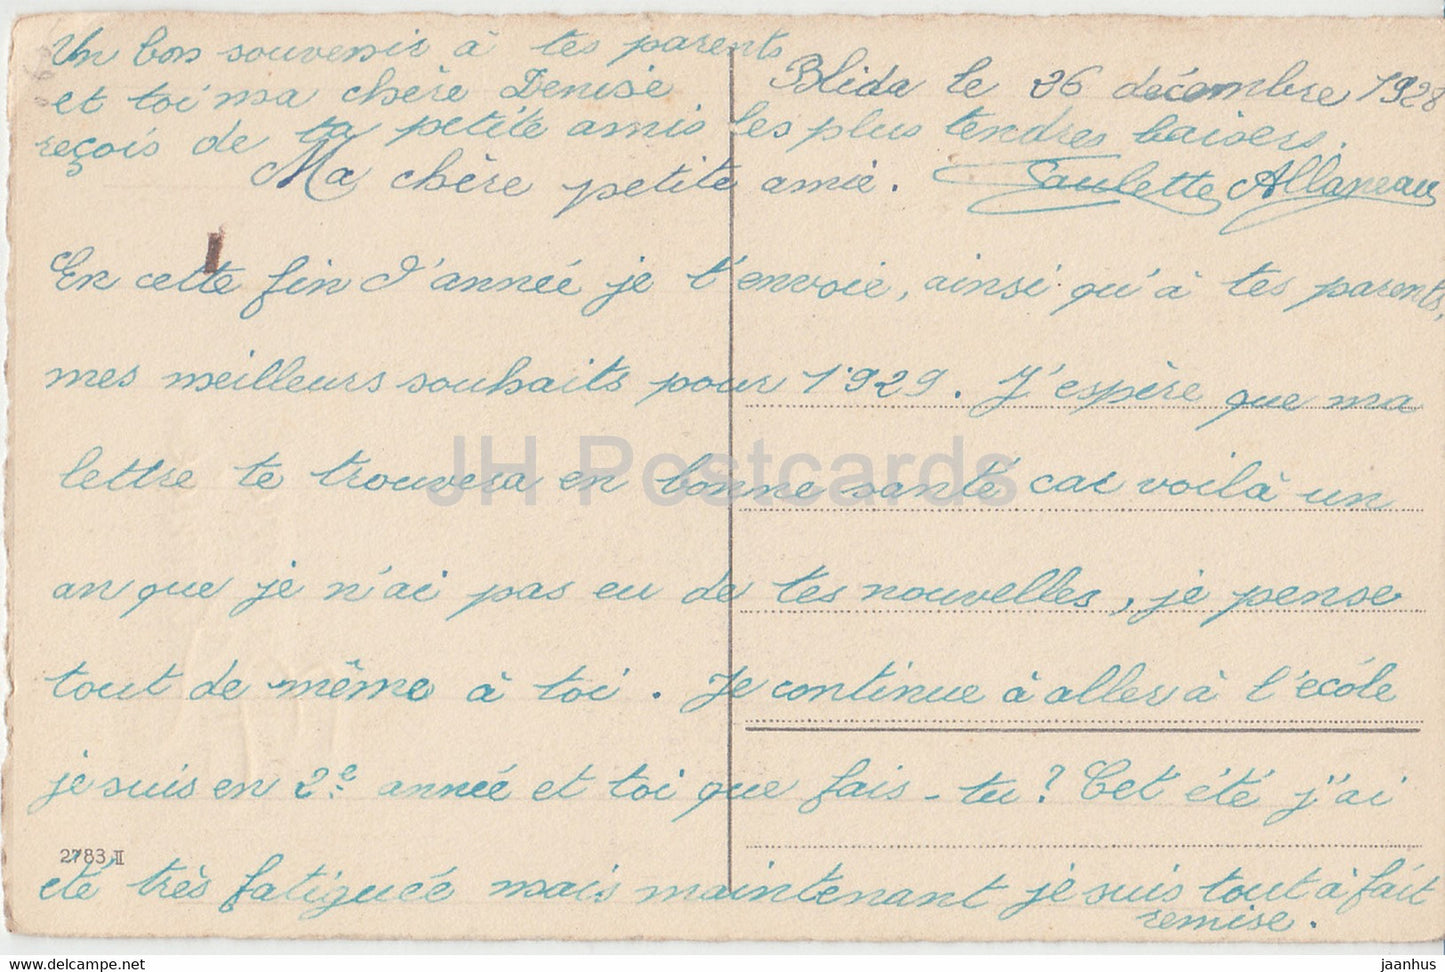 Un bon souvenir à tes parents
et toi ma chère Denise
reçois de ta petite amis les plus tendres baisers.
Blida le 26 décembre 1928
Ma chère petite amie. Paulette Allaneau
En cette fin d'année je t'envoie, ainsi qu'à tes parents,
mes meilleurs souhaits pour 1929. J'espère que ma
lettre te trouvera en bonne santé car voilà un
an que je n'ai pas eu de tes nouvelles, je pense
tout de même à toi. Je continue à aller à l'école
je suis en 2e année et toi que fais-tu? Cet été j'ai
été très fatiguée mais maintenant je suis tout à fait
remise.
2783 II
JH Postcards
hipstamp.com
jaanhus